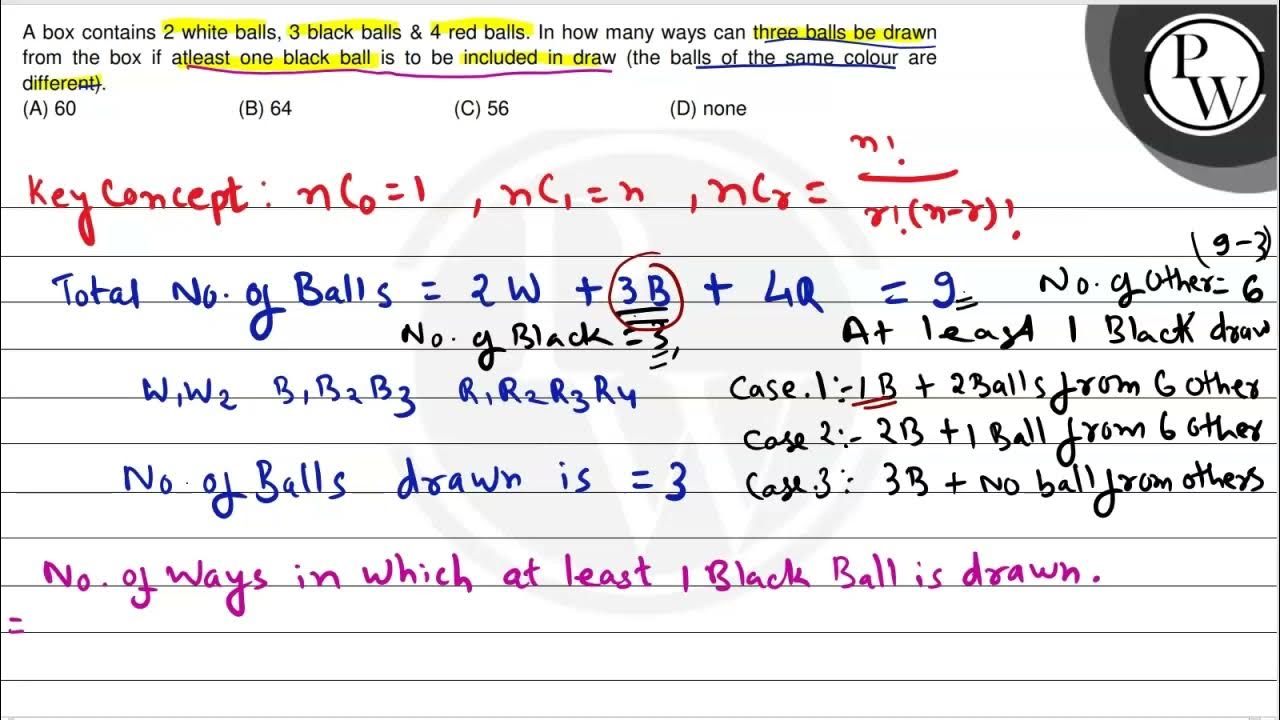 A box contains 2 white balls, 3 black balls & 4 red balls. In how many ways can three balls be drawn
from the box if atleast one black ball is to be included in draw (the balls of the same colour are
different).
(A) 60 (B) 64 (C) 56 (D) none
PW
Key Concept : nC₀ = 1 , nC₁ = n , nCr = n! / r!(n-r)!
(9-3)
Total No. of Balls = 2W + 3B + 4R = 9 No. of Other = 6
No. of Black = 3, At least 1 Black draw
W₁W₂ B₁B₂B₃ R₁R₂R₃R₄ Case.1:- 1B + 2Balls from 6 other
Case 2:- 2B + 1 Ball from 6 other
No. of Balls drawn is = 3 Case.3: 3B + No ball from others
No. of Ways in which at least 1 Black Ball is drawn.
=